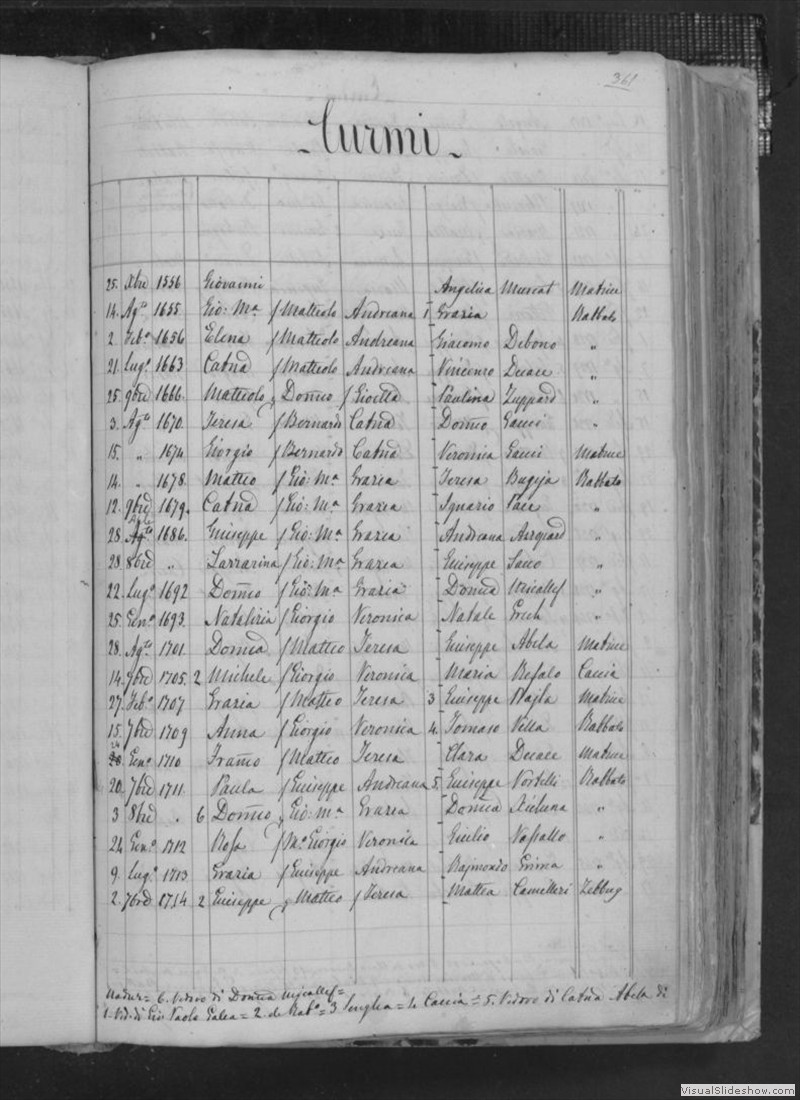 361
- Curmi -
25. Xbre 1556 Giovanni Angelica Muscat Matrice
14. Agto 1655. Gio: Ma f Matteolo Andreana 1 Grazia Rabbato
2. Febo 1656 Elena f Matteolo Andreana Giacomo Debono "
21. Lugo 1663 Catna f Matteolo Andreana Vincenzo Decace "
25. 9bre 1666. Matteolo f Domco f Gioetta Paulina Zuppard "
3. Agto 1670. Teresa f Bernardo Catna Domco Gauci "
15. " 1674. Giorgio f Bernardo Catna Veronica Gauci Matrice
14. " 1678. Matteo f Gio: Ma Grazia Teresa Bugeja Rabbato
12. 9bre 1679. Catna f Gio: Ma Grazia Ignazio Pace "
28. 1686. Giuseppe f Gio: Ma Grazia Andreana "
28. 8bre " Lazzarina f Gio: Ma Grazia Giuseppe "
22. Lugo 1692 Domco f Gio: Ma Grazia Domca Micallef "
25. Geno 1693. Natalizia f Giorgio Veronica Natale Grech "
28. Agto 1701. Domca f Matteo Teresa Giuseppe Abela Matrice
14. 9bre 1705. 2 Michele f Giorgio Veronica Maria Refalo Caccia
27. Febo 1707 Grazia f Matteo Teresa 3 Giuseppe Najla Matrice
15. 7bre 1709 Anna f Giorgio Veronica 4. Tomaso Vella Rabbato
28. Geno 1710 Franco f Matteo Teresa Clara Decace Matrice
20. 7bre 1711. Paula f Giuseppe Andreana 5. Giuseppe Portelli Rabbato
3 8bre . 6 Domco f Gio: Ma Grazia Domca Xicluna "
24 Geno 1712 Rosa f Giorgio Veronica Giulio Vassallo "
9. Lugo 1713 Grazia f Giuseppe Andreana Raimondo Grima "
2. 7bre 1714 2 Giuseppe f Matteo f Teresa Mattea Camilleri Zebbug
Nadur = 6. Vedovo di Domca Micallef =
1. Ved. di Gio Paolo Galea = 2. de Rabo = 3 Senglea = 4 Caccia = 5. Vedovo di Catna Abela di
VisualSlideshow.com